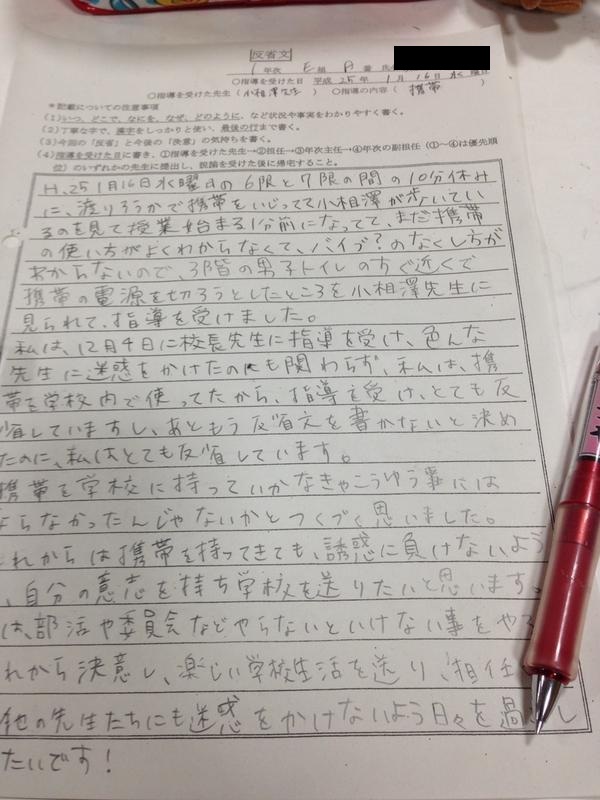 反省文
1 年次 E 組 A 番 氏
○指導を受けた日 平成 25 年 1 月 16 日 水 曜日
○指導を受けた先生(小相澤先生) ○指導の内容(携帯)
*記載についての注意事項
(1)いつ、どこで、なにを、なぜ、どのように、など状況や事実をわかりやすく書く。
(2)丁寧な字で、漢字をしっかりと使い、最後の行まで書く。
(3)今回の「反省」と今後の「決意」の気持ちを書く。
(4)指導を受けた日に書き、①指導を受けた先生→②担任→③年次主任→④年次の副担任(①~④は優先順
位)のいずれかの先生に提出し、説諭を受けた後に帰宅すること。
H.25 1月16日水曜日の6限と7限の間の10分休み
に、渡りろうかで携帯をいじってて小相澤が歩いてい
るのを見て授業始まる1分前になってて、まだ携帯
の使い方がよくわからなくて、バイブ?のなくし方が
わからないので、3階の男子トイレのすぐ近くで
携帯の電源を切ろうとしたところを小相澤先生に
見られて、指導を受けました。
私は、12月4日に校長先生に指導を受け、色んな
先生に迷惑をかけたのにも関わらず、私は、携
帯を学校内で使ってたから、指導を受け、とても反
省していますし、あともう反省文を書かないと決め
たのに、私はとても反省しています。
携帯を学校に持っていかなきゃこうゆう事には
ならなかったんじゃないかとつくづく思いました。
これからは携帯を持ってきても、誘惑に負けないよう
、自分の意志を持ち学校を送りたいと思います。
は、部活や委員会などやらないといけない事をや
れから決意し、楽しい学校生活を送り、担任
他の先生たちにも迷惑をかけないよう日々を過ごし
たいです!